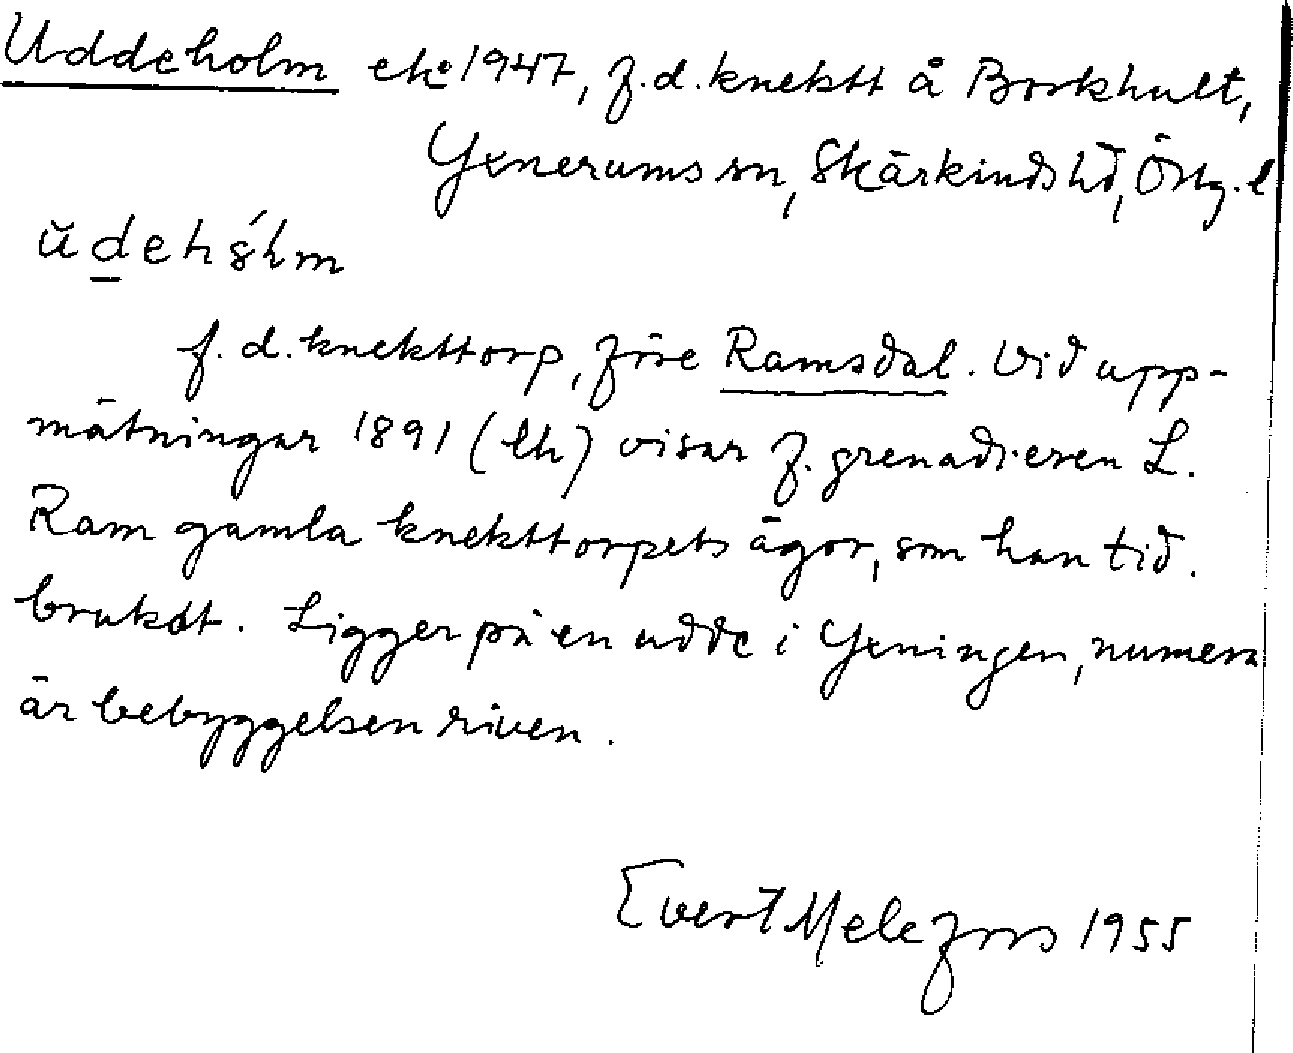 Uddeholm ek 1947, f.d. knektt å Borkhult,
Yxnerums sn, Skärkinds hd, Östg. l
f.d. knekttorp, före Ramsdal. Vid upp-
mätningar 1891 (lh) visar f. grenadieren L.
Ram gamla knekttorpets ägor, som han tid.
brukat. Ligger på en udde i Yxningen, numera
är bebyggelsen riven.
Evert Melefors 1955